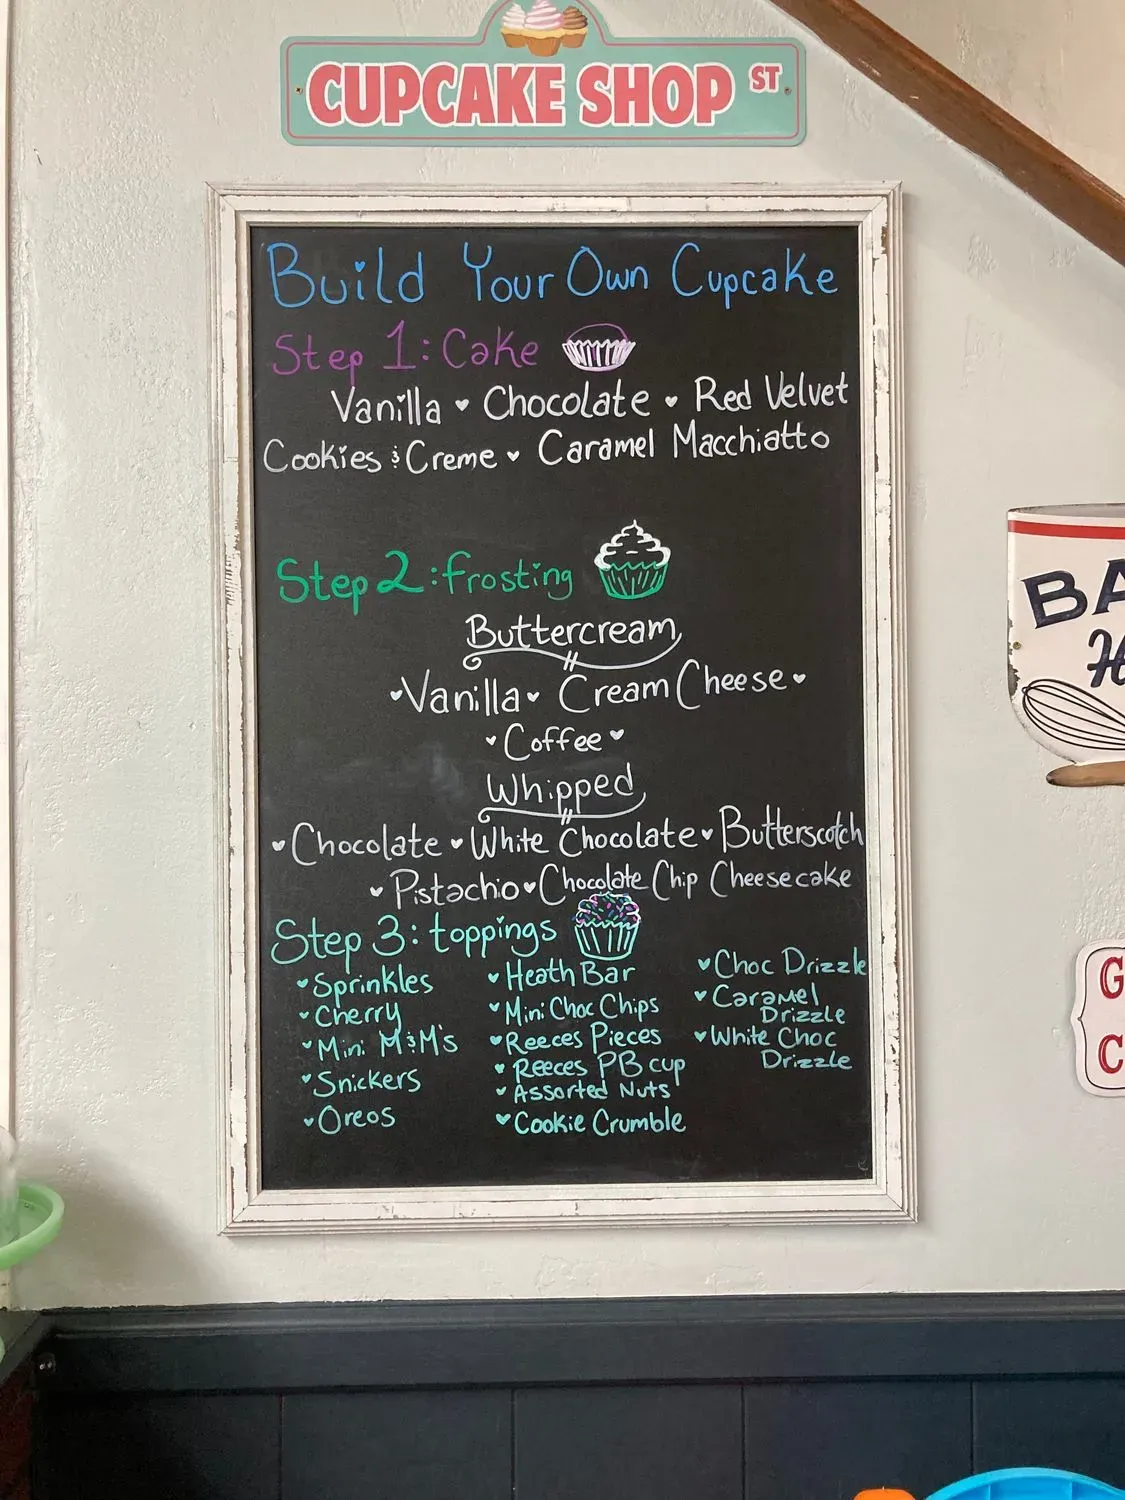 CUPCAKE SHOP ST
Build Your Own Cupcake
Step 1: Cake
Vanilla ♥ Chocolate ♥ Red Velvet
Cookies & Creme ♥ Caramel Macchiatto
Step 2: frosting
Buttercream
♥ Vanilla ♥ Cream Cheese ♥
♥ Coffee ♥
Whipped
♥ Chocolate ♥ White Chocolate ♥ Butterscotch
♥ Pistachio ♥ Chocolate Chip Cheesecake
Step 3: toppings
♥ Sprinkles
♥ Cherry
♥ Mini M&M's
♥ Snickers
♥ Oreos
♥ Heath Bar
♥ Mini Choc Chips
♥ Reeces Pieces
♥ Reeces PB cup
♥ Assorted Nuts
♥ Cookie Crumble
♥ Choc Drizzle
♥ Caramel
Drizzle
♥ White Choc
Drizzle
BA
H
G
C